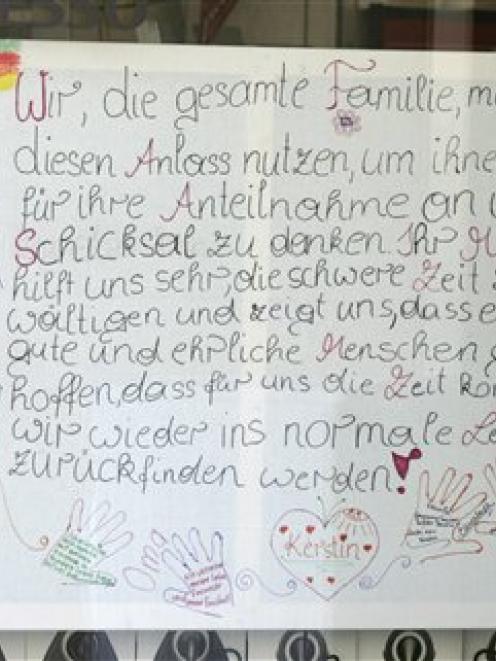 ESSO
Wir, die gesamte Familie, m
diesen Anlass nutzen, um ihne
für ihre Anteilnahme an
Schicksal zu danken. Ihr M
hilft uns sehr, die schwere Zeit
wältigen und zeigt uns, dass e
gute und ehrliche Menschen g
hoffen, dass für uns die Zeit kom
wir wieder ins normale Le
zurückfinden werden!
Kerstin